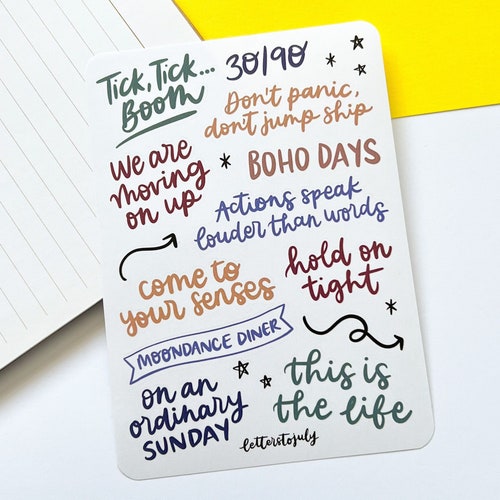 Tick, Tick...
BOOM
30/90
Don't panic,
don't jump ship
We are
moving
on up
BOHO DAYS
Actions speak
louder than words
come to
your senses
hold on
tight
MOONDANCE DINER
on an
ordinary
SUNDAY
this is
the life
letterstojuly